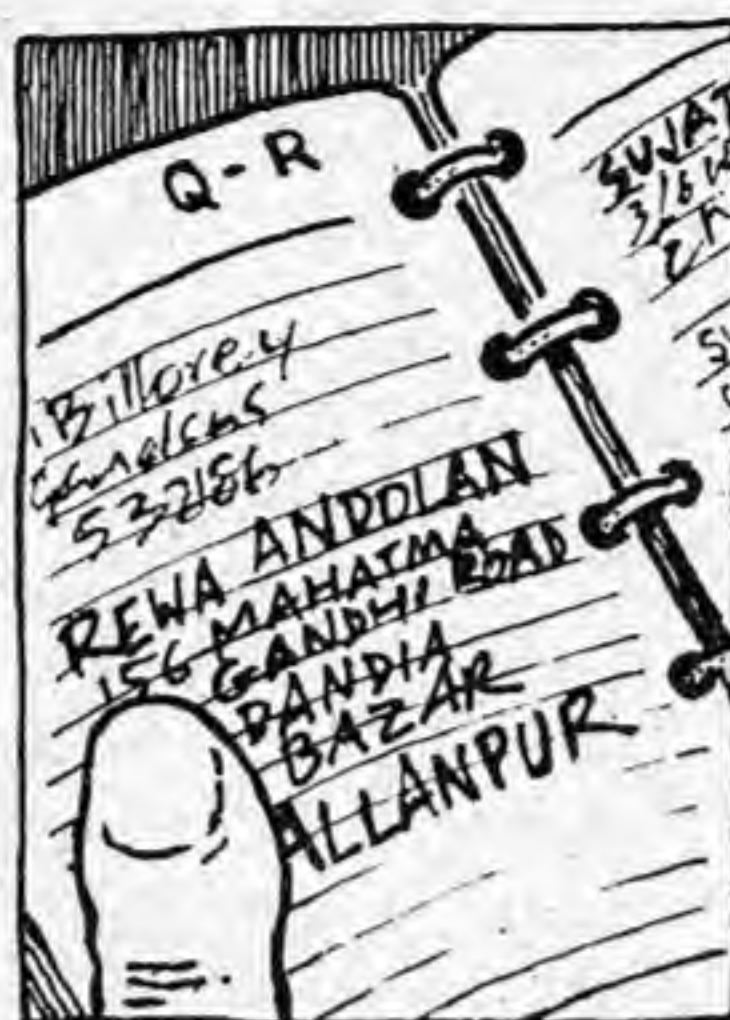 Q-R
Billorey
53286
REWA ANDOLAN
156 MAHATMA
GANDHI ROAD
DANDIA
BAZAR
ALLANPUR
SUJAT
3/6